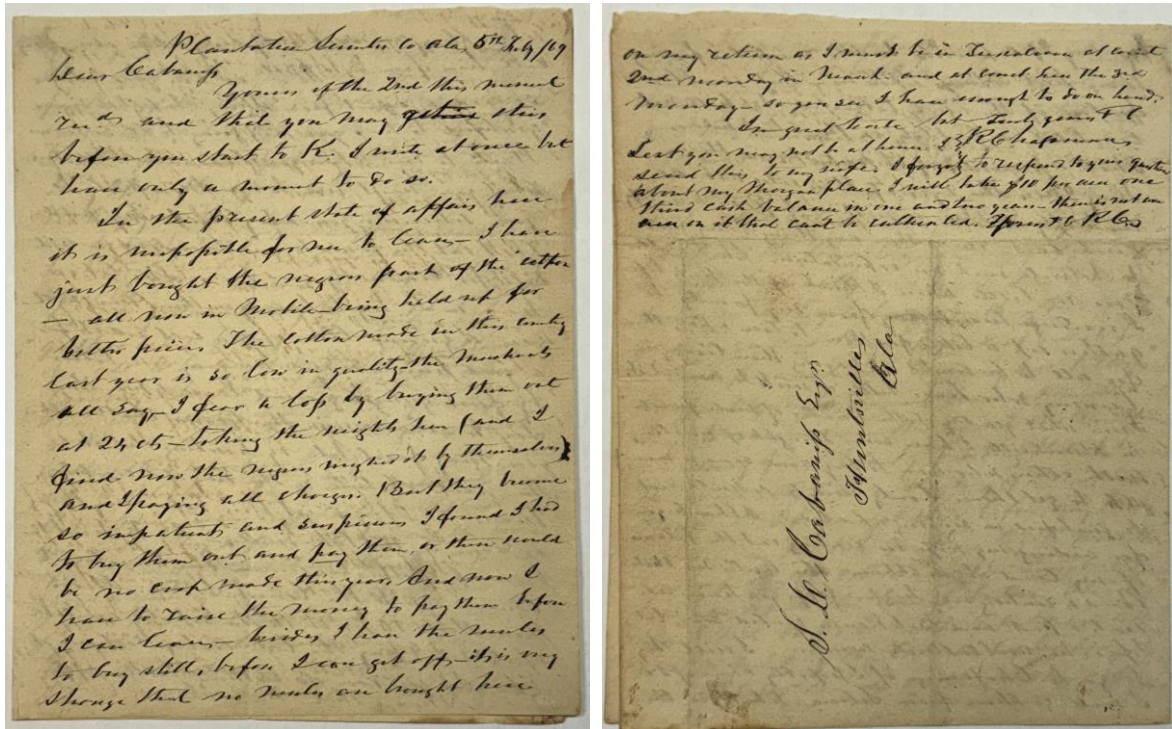 Plantation Sumter Co Ala. 5th Feby/69
Dear Cabaniss
Yours of the 2nd this moment
recd and that you may get this
before you start to K. I write at once but
have only a moment to do so.
In the present state of affairs here
it is impossible for me to leave — I have
just bought the negroes part of the cotton
— all now in Mobile — being held up for
better prices. The cotton made in this county
last year is so low in quality — the merchants
all say — I fear a loss by buying them out
at 24 cts — taking the weights here (and I
find now the negroes weighed it by themselves)
and I paying all charges. But they became
so impatient and suspicious I found I had
to buy them out and pay them, or there would
be no crop made this year. And now I
have to raise the money to pay them before
I can leave — besides I have the mules
to buy still, before I can get off — it is very
strange that no mules are brought here
on my return as I must be in Tuscaloosa at court
2nd Monday in March. and at court here the 3rd
Monday — so you see I have enough to do on hand.
In great haste but truly yours
R C Chapman
Lest you may not be at home I
send this to my wife. I forgot to respond to your question
about my Morgan place. I will take $10 per acre one
third cash balance in one and two years — there is not an
acre on it that cant be cultivated. R C
S. D. Cabaniss Esqr
Huntsville
Ala